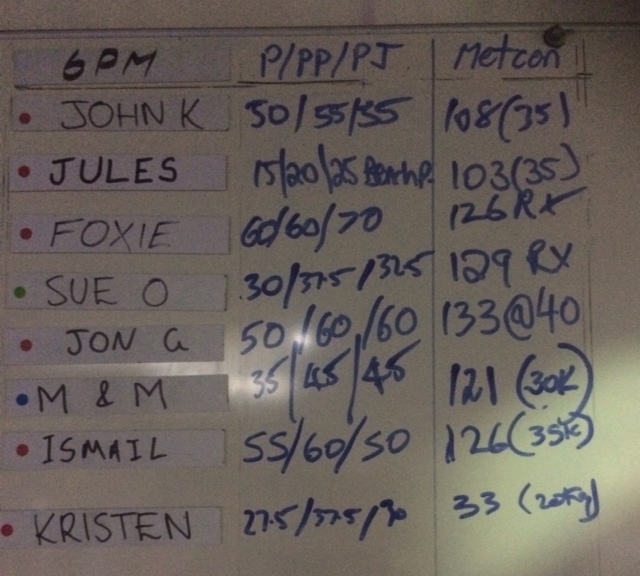 6PM P/PP/PJ Metcon
JOHN K 50/55/55 108(35)
JULES 15/20/25 BenchP. 103(35)
FOXIE 60/60/70 126 RX
SUE O 30/37.5/32.5 129 RX
JON G 50/60/60 133@40
M & M 35/45/45 121 (30K)
ISMAIL 55/60/50 126(35K)
KRISTEN 27.5/37.5/ 33 (20Kg)